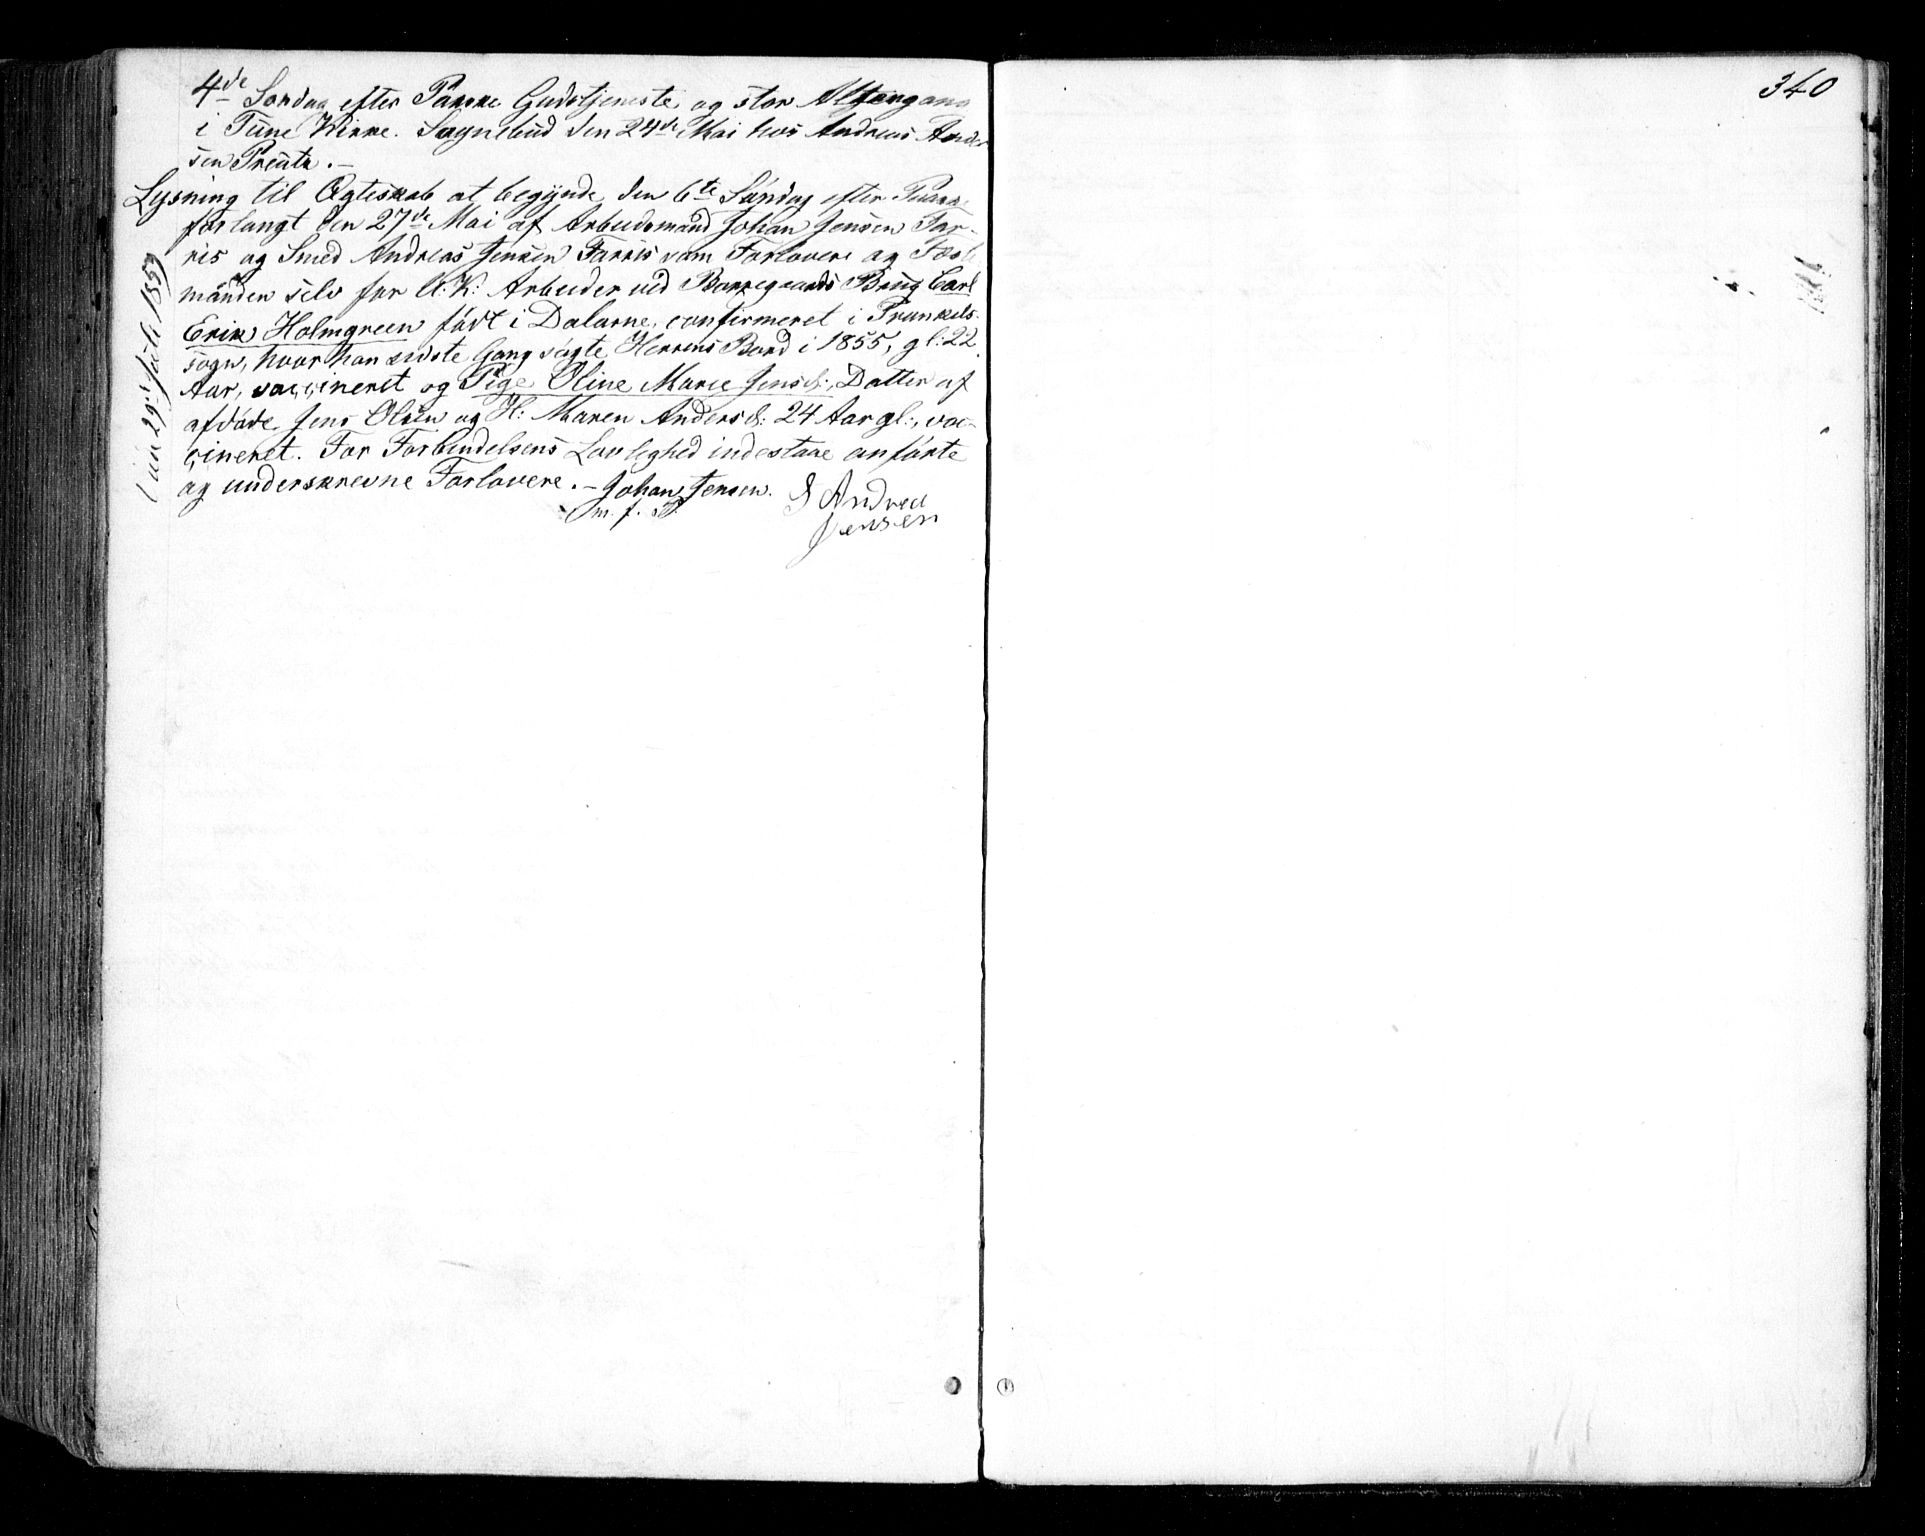 340
4de Søndag efter Paaske Gudstjeneste og stor Altergang
i Tune Kirke. Sognebud den 24de Mai hos Andreas Ander
sen
Lysning til Ægteskab at begynde den 6te Søndag efter Paaske
forlangt den 27de Mai af Arbeidsmand Johan Jensen Far-
ris og Smed Andreas Jensen Farris som Forlovere og Fæste
manden selv for U: K: Arbeider ved Borregaards Brug Carl
Erik Holmgreen født i Dalarne, confirmeret i
sogn, hvor han sidste Gang søgte Herrens Bord i 1855, gl: 22
Aar, vaccineret og Pige Oline Marie Jensd:, Datter af
afdøde Jens Olsen og H: Maren Andersd: 24 Aar gl:, vac-
cineret. For Forbindelsens Lovlighed indestaae anførte
og underskrevne Forlovere. – Johan Jensen. Andrea
m. f. P. Jensen
29de Juli 1859